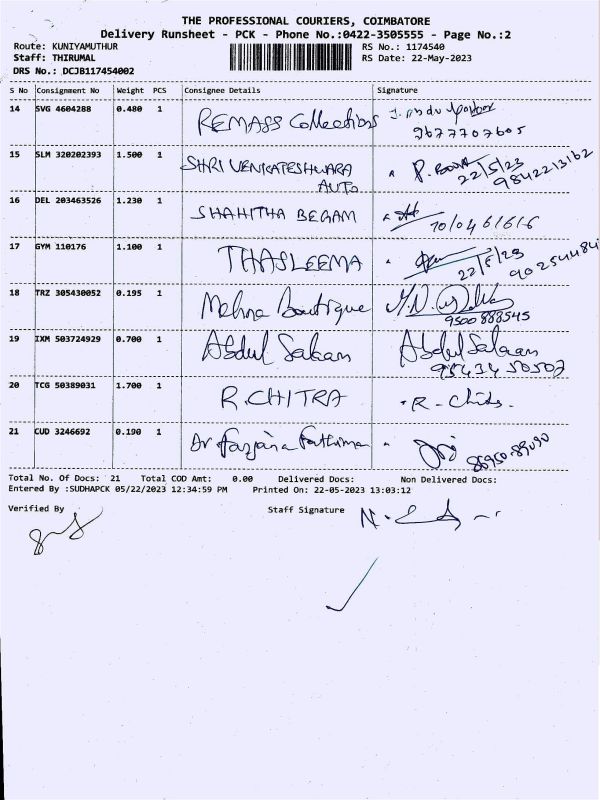 THE PROFESSIONAL COURIERS, COIMBATORE
Delivery Runsheet - PCK - Phone No.:0422-3505555 - Page No.:2
Route: KUNIYAMUTHUR RS No.: 1174540
Staff: THIRUMAL RS Date: 22-May-2023
DRS No.: DCJB117454002
S No Consignment No Weight PCS Consignee Details Signature
14 SVG 4604288 0.480 1 REMASS Collections
9677707605
15 SLM 320202393 1.500 1 SHRI VENKATESHWARA
AUTO 22/5/23 9842213162
16 DEL 203463526 1.230 1 SHAHITHA BEGAM
17 GYM 110176 1.100 1 THASLEEMA
22/5/23
18 TRZ 305430052 0.195 1 Mehna Boutique
9500888545
19 IXM 503724929 0.700 1 Abdul Salaam Abdul Salaam
9543450507
20 TCG 50389031 1.700 1 R.CHITRA R-
21 CUD 3246692 0.190 1 Dr farjana Fathima
Total No. Of Docs: 21 Total COD Amt: 0.00 Delivered Docs: Non Delivered Docs:
Entered By :SUDHAPCK 05/22/2023 12:34:59 PM Printed On: 22-05-2023 13:03:12
Verified By Staff Signature